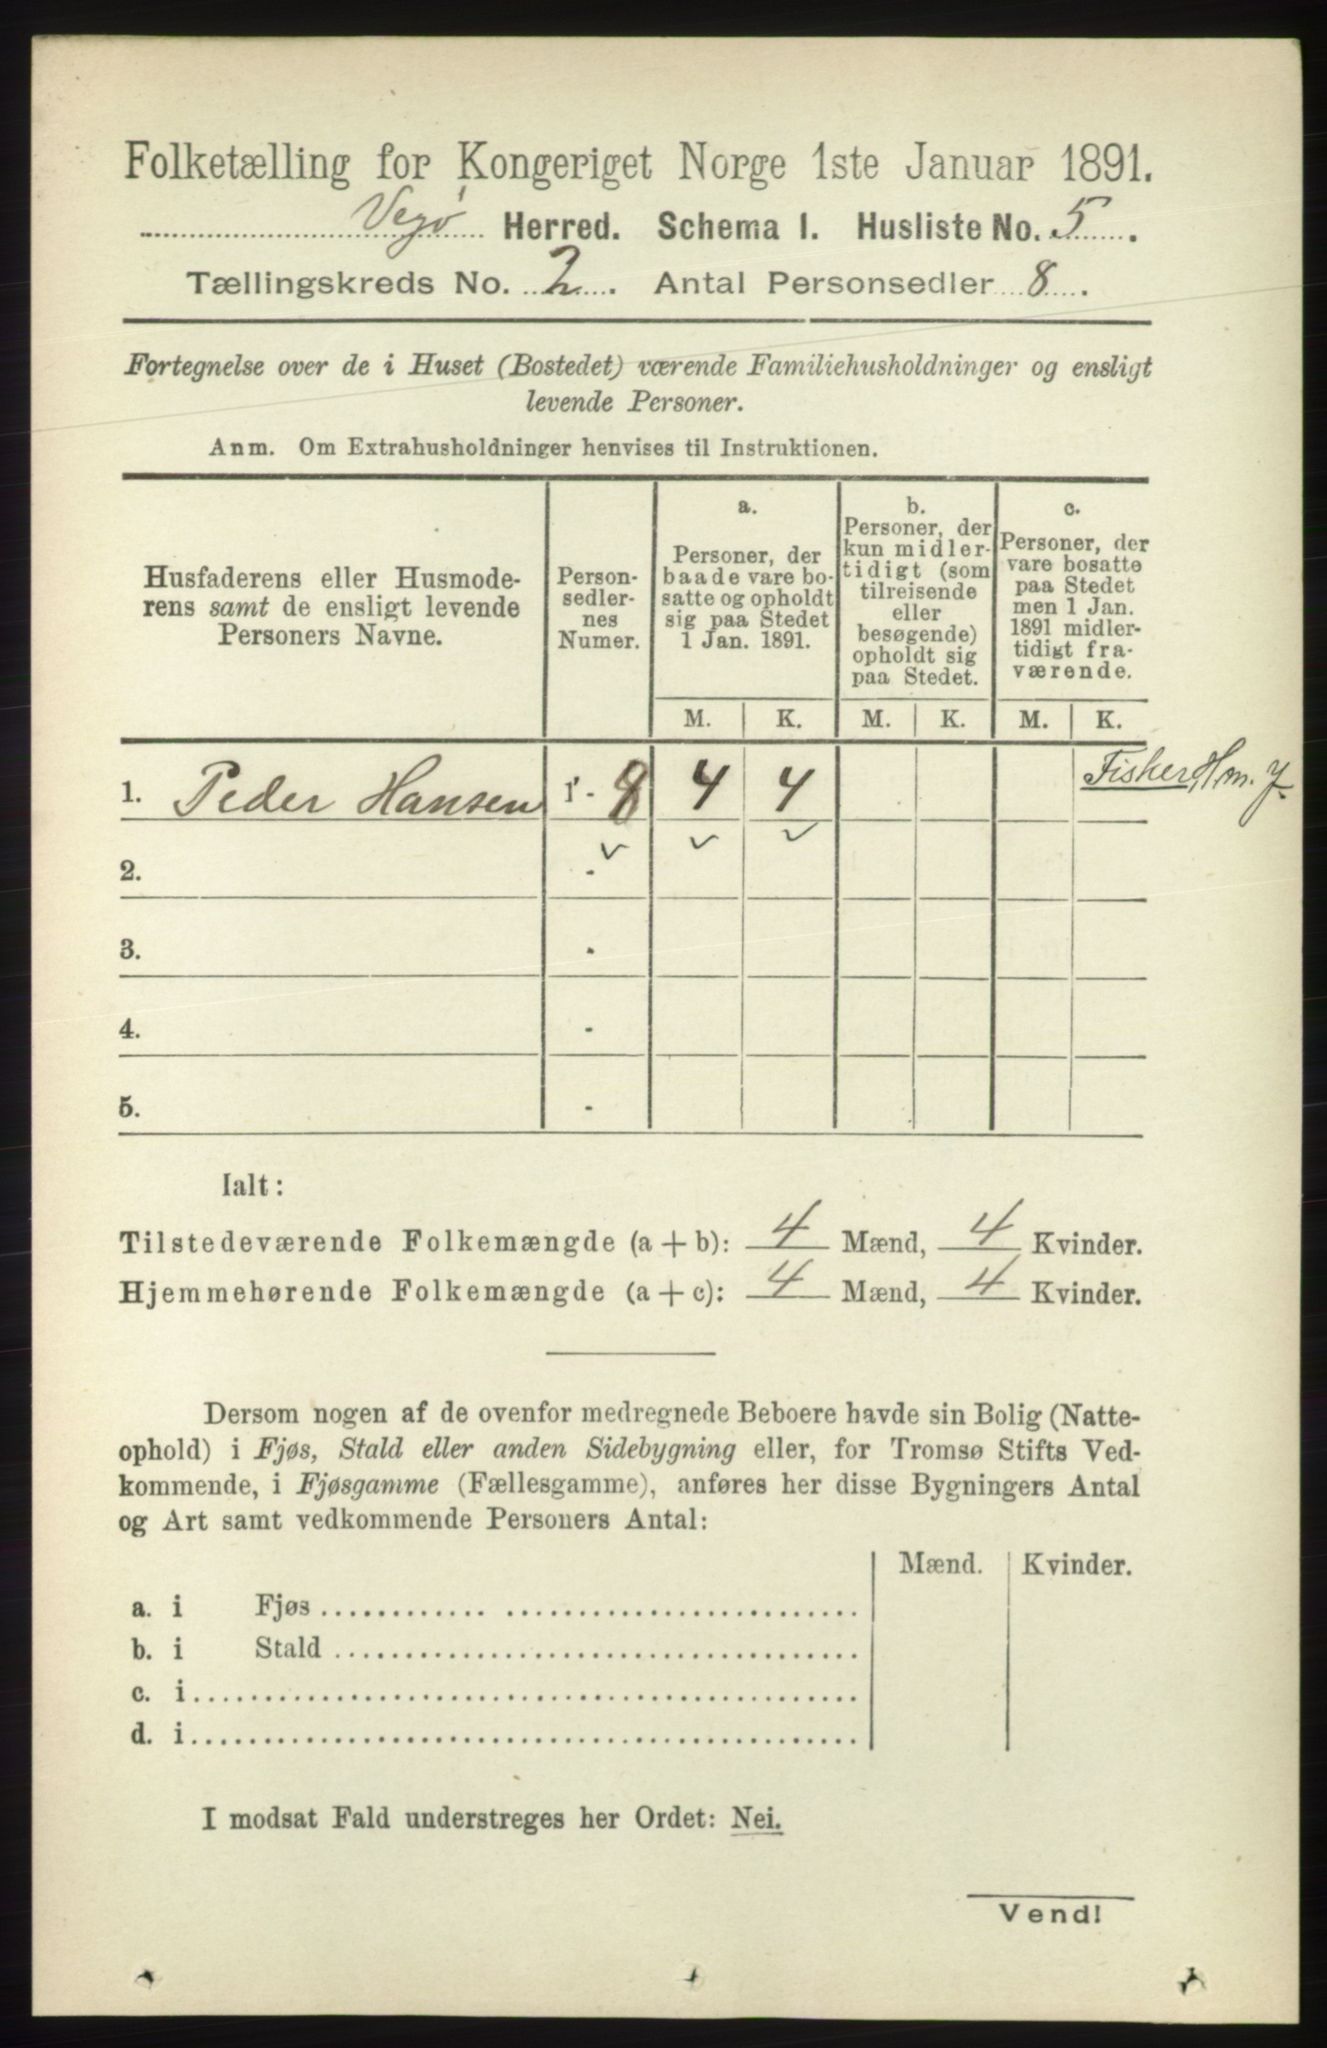 Folketælling for Kongeriget Norge 1ste Januar 1891.
Vegø Herred. Schema I. Husliste No. 5.
Tællingskreds No. 2. Antal Personsedler 8.
Fortegnelse over de i Huset (Bostedet) værende Familiehusholdninger og ensligt
levende Personer.
Anm. Om Extrahusholdninger henvises til Instruktionen.
Husfaderens eller Husmode-
rens samt de ensligt levende
Personers Navne.
Person-
sedler-
nes
Numer.
a.
Personer, der
baade vare bo-
satte og opholdt
sig paa Stedet
1 Jan. 1891.
b.
Personer, der
kun midler-
tidigt (som
tilreisende
eller
besøgende)
opholdt sig
paa Stedet.
c.
Personer, der
vare bosatte
paa Stedet
men 1 Jan.
1891 midler-
tidigt fra-
værende.
M. K. M. K. M. K.
1. Peder Hansen 1 - 8 4 4 Fisker, Hm. J.
2. -
3. -
4. -
5. -
Ialt:
Tilstedeværende Folkemængde (a + b): 4 Mænd, 4 Kvinder.
Hjemmehørende Folkemængde (a + c): 4 Mænd, 4 Kvinder.
Dersom nogen af de ovenfor medregnede Beboere havde sin Bolig (Natte-
ophold) i Fjøs, Stald eller anden Sidebygning eller, for Tromsø Stifts Ved-
kommende, i Fjøsgamme (Fællesgamme), anføres her disse Bygningers Antal
og Art samt vedkommende Personers Antal:
Mænd. Kvinder.
a. i Fjøs
b. i Stald
c. i
d. i
I modsat Fald understreges her Ordet: Nei.
Vend!